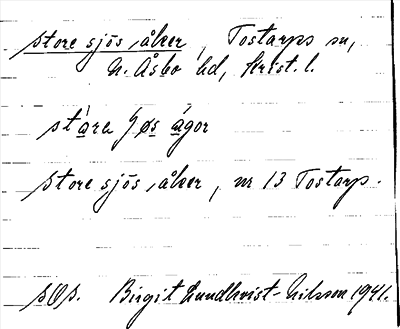 store sjös åker, Tostarps sn,
N. Åsbo hd, Krist. l.
stara ʃøs ågor
store sjös åker, nr 13 Tostarp.
sOs. Birgit Lundkvist-Nilsson 1941.